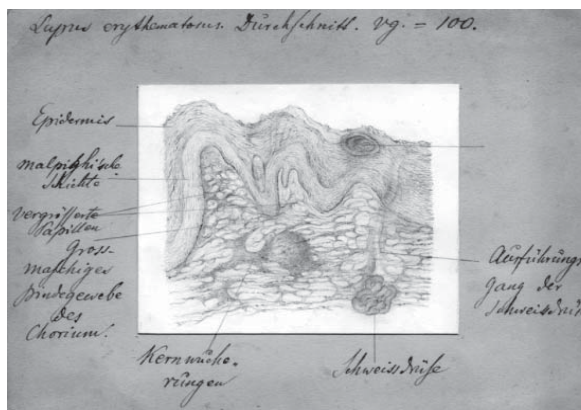 Lupus erythematosus. Durchschnitt. Vg. = 100.
Epidermis
malpighische
Schichte
vergrösserte
Papillen
Gross-
maschiges
Bindegewebe
des
Chorium.
Kernwuche-
rungen
Schweissdrüse
Ausführungs
gang der
Schweissdrüse